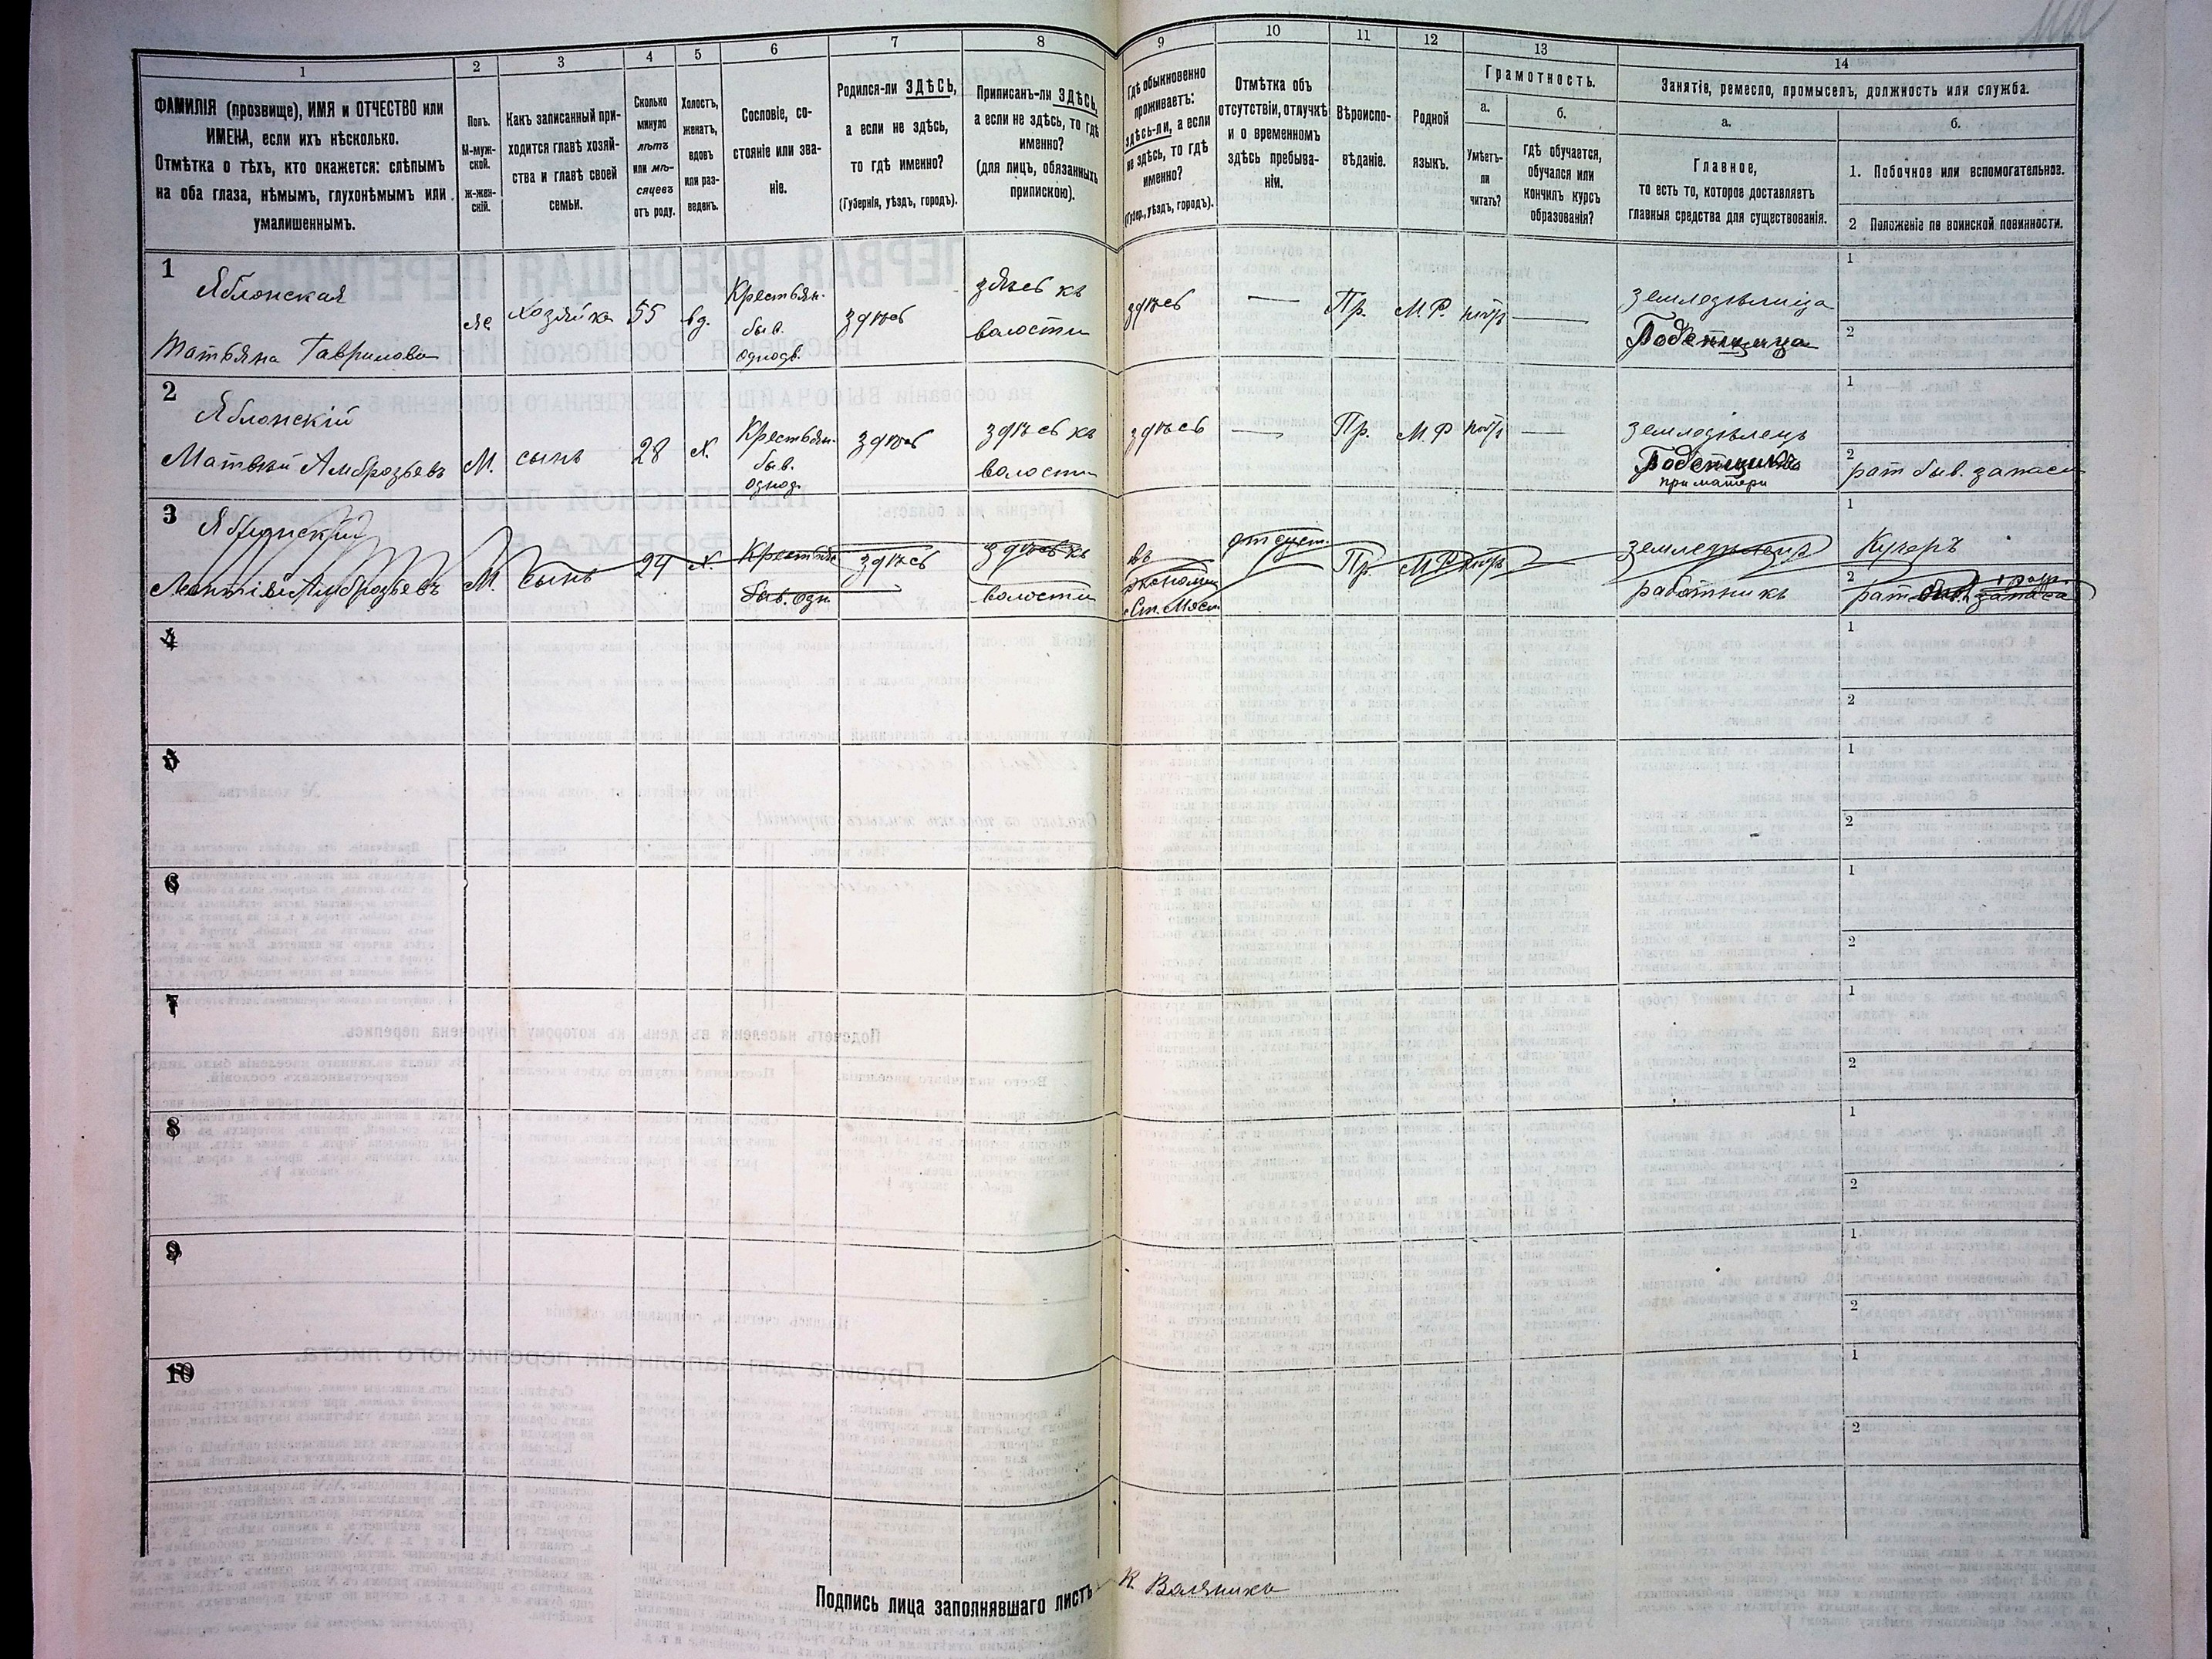 1
2
3
4
5
6
7
8
9
10
11
12
13
14
ФАМИЛІЯ (прозвище), ИМЯ и ОТЧЕСТВО или
ИМЕНА, если ихъ нѣсколько.
Отмѣтка о тѣхъ, кто окажется: слѣпымъ
на оба глаза, нѣмымъ, глухонѣмымъ или
умалишеннымъ.
Полъ.
М-муж-
ской.
ж-жен-
скій.
Какъ записанный при-
ходится главѣ хозяй-
ства и главѣ своей
семьи.
Сколько
минуло
лѣтъ
или мѣ-
сяцевъ
отъ роду.
Холостъ,
женатъ,
вдовъ
или раз-
веденъ.
Сословіе, со-
стояніе или зва-
ніе.
Родился-ли ЗДѢСЬ,
а если не здѣсь,
то гдѣ именно?
(Губернія, уѣздъ, городъ).
Приписанъ-ли ЗДѢСЬ,
а если не здѣсь, то гдѣ
именно?
(для лицъ, обязанныхъ
припискою).
Гдѣ обыкновенно
проживаетъ:
здѣсь-ли, а если
не здѣсь, то гдѣ
именно?
(Губер., уѣздъ, городъ).
Отмѣтка объ
отсутствіи, отлучкѣ
и о временномъ
здѣсь пребыва-
ніи.
Вѣроиспо-
вѣданіе.
Родной
языкъ.
Грамотность.
а.
б.
Умѣетъ-
ли
читать?
гдѣ обучается,
обучался или
кончилъ курсъ
образованія?
Занятіе, ремесло, промыселъ, должность или служба.
а.
б.
Главное,
то есть то, которое доставляетъ
главныя средства для существованія.
1. Побочное или вспомогательное.
2 Положеніе по воинской повинности.
1
Яблонская
Татьяна Гаврилова
ж.
хозяйка
55
вд.
Крестьян.
быв.
однодв.
здѣсь
здѣсь къ
волости
здѣсь
—
Пр.
М.Р.
нѣтъ
—
земледѣлица
1
2
2
Яблонскій
Матвѣй Амброзьевъ
М.
сынъ
28
х.
Крестьян.
быв.
однод.
здѣсь
здѣсь къ
волости
здѣсь
—
Пр.
М.Р
нѣтъ
—
земледѣлецъ
при матери
1
2
рат быв. запаса
3
Яблонскій
Леонтій Амброзьевъ
М.
сынъ
24
х.
Крестьян
быв. одн.
здѣсь
здѣсь къ
волости
въ
экономіи
отсут.
Пр.
М.Р
нѣтъ
работникъ
1
Кучеръ
2
рат
запаса
4
1
2
5
1
2
6
1
2
7
1
2
8
1
2
9
1
2
10
1
2
Подпись лица заполнявшаго листъ